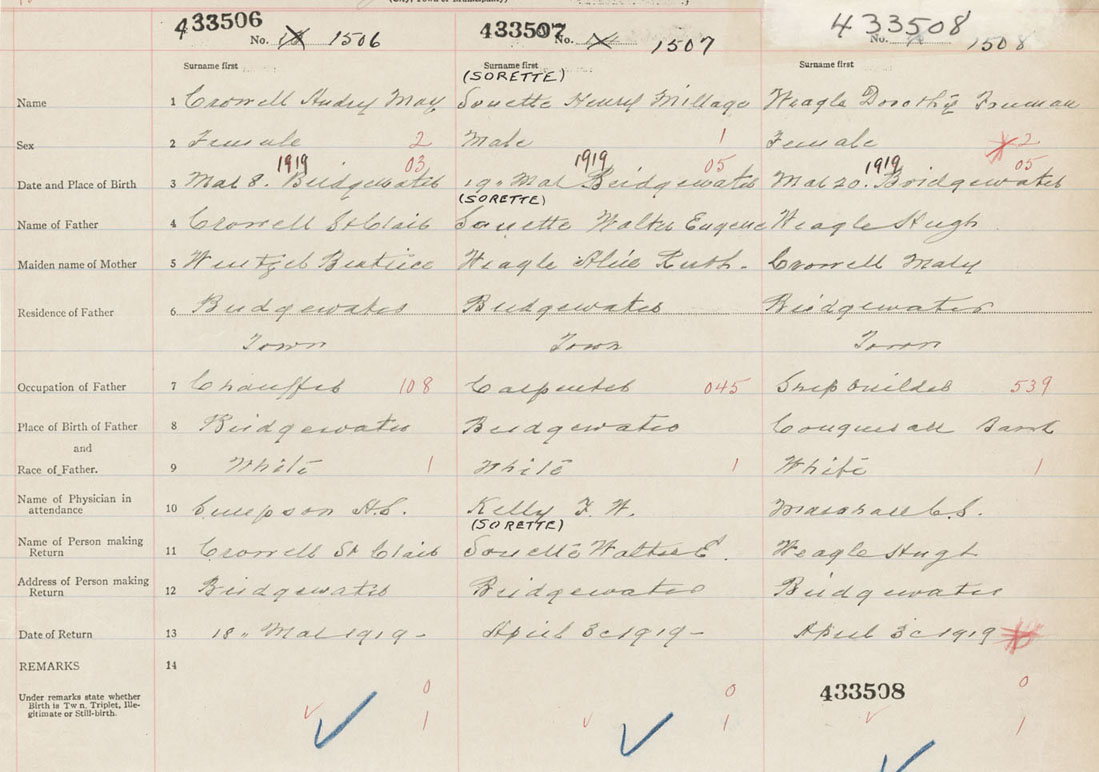 (City, Town or Municipality)
433506 433507 433508
No. 1506 No. 1507 No. 1508
Surname first Surname first Surname first
(SORETTE)
Name 1 Crowell Audry May Sorette Henry Millage Weagle Dorothy Freeman
Sex 2 Female 2 Male 1 Female 2
1919 03 1919 05 1919 05
Date and Place of Birth 3 Mar 8. Bridgewater 19" Mar Bridgewater Mar 20. Bridgewater
(SORETTE)
Name of Father 4 Crowell St Clair Sorette Walter Eugene Weagle Hugh
Maiden name of Mother 5 Wentzel Beatrice Weagle Alice Ruth. Crowell Mary
Residence of Father 6 Bridgewater Bridgewater Bridgewater
Town Town Town
Occupation of Father 7 Chauffer 108 Carpenter 045 Ship builder 539
Place of Birth of Father 8 Bridgewater Bridgewater Conquerall Bank
and
Race of Father. 9 White 1 White 1 White 1
Name of Physician in
attendance 10 H.S. Kelly F. W. Marshall C.S.
(SORETTE)
Name of Person making
Return 11 Crowell St Clair Sorette Walter E. Weagle Hugh
Address of Person making
Return 12 Bridgewater Bridgewater Bridgewater
Date of Return 13 18" Mar 1919 - April 3 1919 - April 3 1919
REMARKS 14
Under remarks state whether
Birth is Twn, Triplet, Ille-
gitimate or Still-birth.
0 0 433508 0
1 1 1